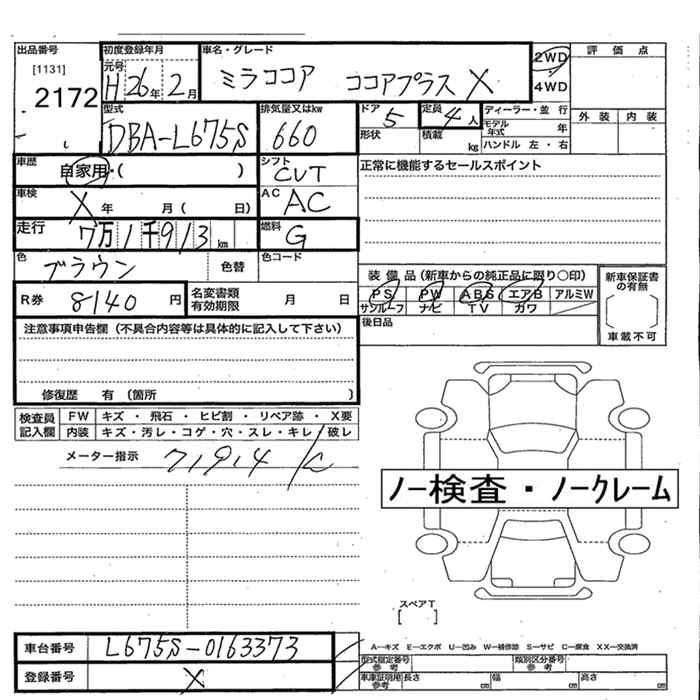 出品番号 [1131] 2172
初度登録年月 元号 H 26年 2月
車名・グレード ミラココア ココアプラス X
2WD
4WD
評価点
外装 内装
型式 DBA-L675S
排気量又はkw 660
ドア 5
形状
定員 4人
積載 kg
ディーラー・並行
モデル年式 年
ハンドル 左・右
車歴 自家用・( )
シフト CVT
正常に機能するセールスポイント
車検 X 年 月( 日)
AC AC
走行 7万1千913km
燃料 G
色 ブラウン 色替
色コード
装備品(新車からの純正品に限り○印)
PS PW ABS エアB アルミW
サンルーフ ナビ TV カワ
後日品
新車保証書の有無
[ ]
車載不可
R券 8140円
名変書類有効期限 月 日
注意事項申告欄(不具合内容等は具体的に記入して下さい)
修復歴 有(箇所 )
検査員記入欄
FW キズ・飛石・ヒビ割・リペア跡・X要
内装 キズ・汚レ・コゲ・穴・スレ・キレ・破レ
メーター指示 71914
ノー検査・ノークレーム
スペアT
[ ]
車台番号 L675S-0163373
登録番号 X
A-キズ E-エクボ U-凹み W-補修跡 S-サビ C-腐食 XX-交換済
型式指定番号参考 類別区分番号参考
車庫証明用参考 長さ cm 幅 cm 高さ cm